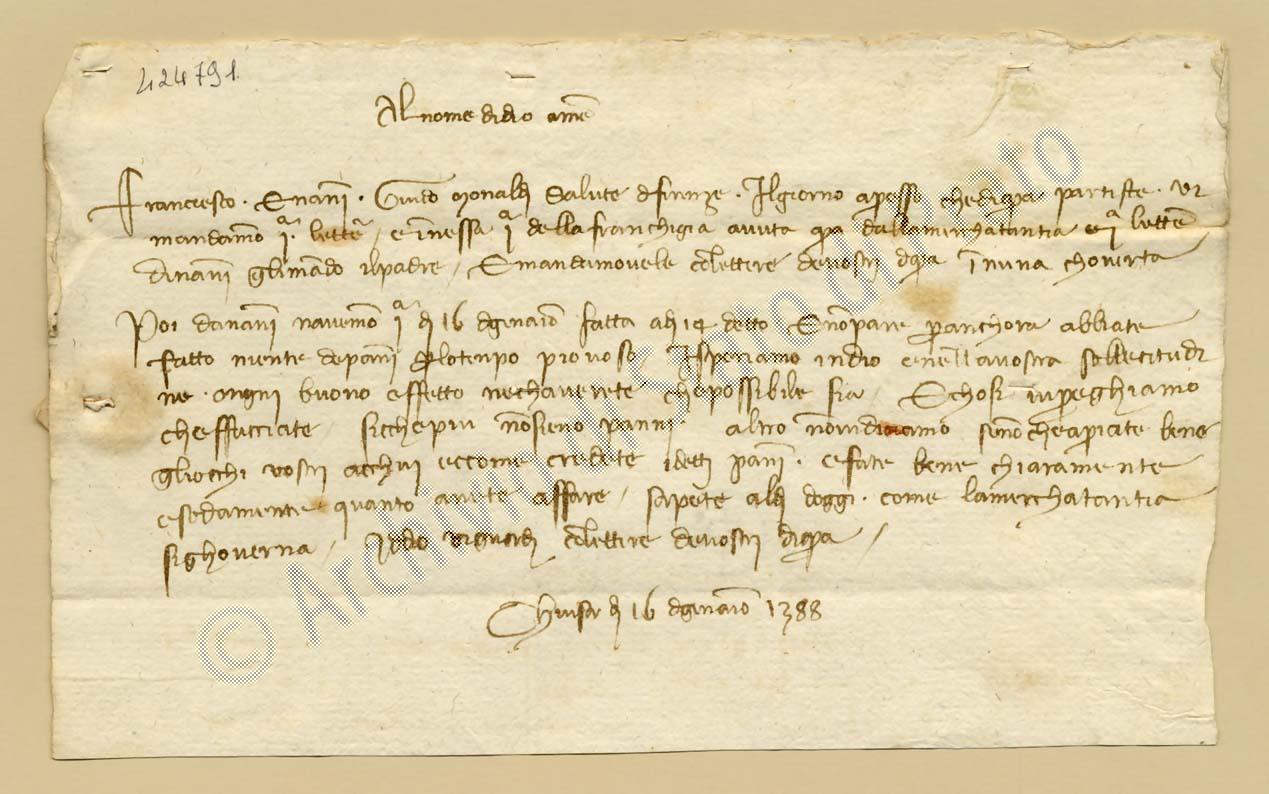 424791
Al nome didio ame
Francescho · E nani · Guido Monaldi salute di firenze · Il giorno apresso che di qua partiste · vi
mandamo iª lettera / e inessa iª della franchigia avuta qua dalla merchatantia e iª lettera
di nani gli mando il padre / E mandamovele cho lettere de vostri di qua in una choverta
Poi da nani navemo iª di 16 di genaio fatta a di 14 detto E non pare per anchora abbiate
fatto niente de pani per lo tenpo piovoso / Isperiamo in dio e nella vostra sollecitudi
ne · ongni buono effetto ne chaverete che possibile sia / E chosi vi preghiamo
che ffacciate / sicche piu non sieno panni · altro non vi diciamo se non che apriate bene
gliocchi vostri a cchui e come credete i detti pani · e fate bene chiaramente
e sodamente quanto avete affare / sapete al di doggi · come la merchatantia
si ghoverna / Iddio vi guardi cho lettere de vostri di qua /
Chiusa di 16 di genaio 1388
© Archivio di Stato di Prato